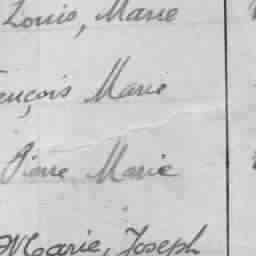 Louis, Marie
Marie
Pierre Marie
Marie, Joseph